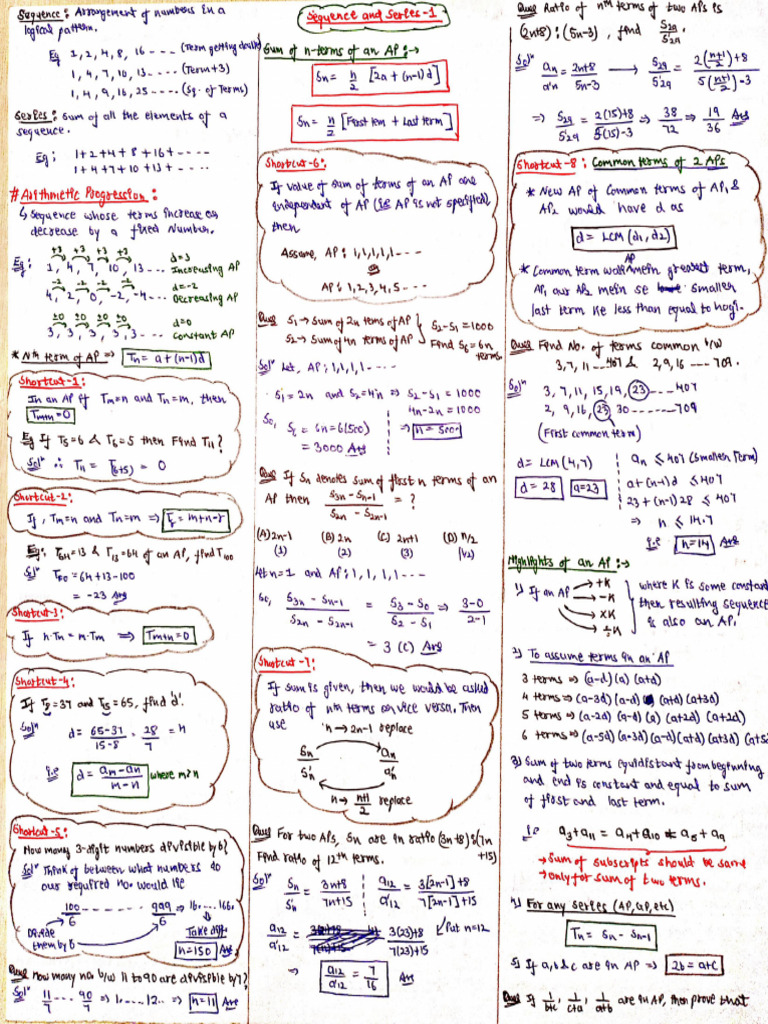 Sequence and Series-1
Sequence: Arrangement of numbers in a
logical pattern.
Eg 1, 2, 4, 8, 16 ---- (Term getting double)
1, 4, 7, 10, 13 ---- (Term+3)
1, 4, 9, 16, 25 ---- (Sq. of Terms)
Series: Sum of all the elements of a
sequence.
Eg: 1+2+4+8+16+ ----
1+4+7+10+13+ ----
# Arithmetic Progression:
↳ Sequence whose terms increase or
decrease by a fixed Number.
+3 +3 +3 +3
Eg: 1, 4, 7, 10, 13 --- d=3 Increasing AP
-2 -2 -2 -2
4, 2, 0, -2, -4 --- d=-2 Decreasing AP
+0 +0 +0 +0
3, 3, 3, 3, 3 --- d=0 Constant AP
* Nth term of AP ⇒ Tn = a+(n-1)d
Shortcut-1:
In an AP if Tm=n and Tn=m, then
Tm+n=0
Eg If T5=6 & T6=5 then Find T11?
Solⁿ ∴ T11 = T(6+5) = 0
Shortcut-2:
If, Tm=n and Tn=m ⇒ Tr = m+n-r
Eg: T64=13 & T13=64 of an AP, find T100
Solⁿ = 64+13-100
= -23 Ans
Shortcut-3:
If n.Tn = m.Tm ⇒ Tm+n=0
Shortcut-4:
If T8=37 and T15=65, find 'd'.
Solⁿ d = 65-37/15-8 = 28/7 = 4
i.e d = am-an/m-n where m>n
Shortcut-5:
How many 3-digit numbers divisible by 6?
Solⁿ Think of between what numbers do
our required no. would lie
100/6 ------- 999/6 ⇒ 16. ---- 166.
Divide them by 6
Take diff.
n=150 Ans
Ques How many no. b/w 11 to 90 are divisible by 7?
Solⁿ 11/7 ---- 90/7 ⇒ 1. ---- 12.. ⇒ n=11 Ans
Sum of n-terms of an AP :→
Sn = n/2 [2a+(n-1)d]
Sn = n/2 [First term + Last term]
Shortcut-6:
If value of sum of terms of an AP are
independent of AP (i.e AP is not specified)
then
Assume, AP: 1,1,1,1,1 ----
or
AP: 1,2,3,4,5 ----
Ques S1 → Sum of 2n terms of AP
S2 → Sum of 4n terms of AP
S2-S1=1000
Find S6=6n terms.
Solⁿ Let, AP: 1,1,1,1 ----
S1=2n and S2=4n ⇒ S2-S1=1000
4n-2n=1000
⇒ n=500
So, S6=6n=6(500)
=3000 Ans
Ques If Sn denotes sum of first n terms of an
AP then S3n - Sn-1 / S2n - S2n-1 = ?
(A) 2n-1 (B) 2n (C) 2n+1 (D) n/2
(1) (2) (3) (1/2)
Let n=1 and AP: 1, 1, 1, 1 ----
So, S3n-Sn-1 / S2n-S2n-1 = S3-S0 / S2-S1 ⇒ 3-0/2-1
= 3 (C) Ans
Shortcut-7:
If sum is given, then we would be asked
ratio of nth terms or vice versa. Then
use
n → 2n-1 replace
Sn/S'n an/a'n
n → n+1/2 replace
Ques For two APs, Sn are in ratio (3n+8):(7n+15)
Find ratio of 12th terms.
Solⁿ Sn/S'n = 3n+8/7n+15 a12/a'12 = 3[2n-1]+8/7[2n-1]+15
Put n=12
a12/a'12 = 3(23)+8/7(23)+15
⇒ a12/a'12 = 7/16 Ans
Ques Ratio of nth terms of two APs is
(2n+8):(5n-3), find S29/S'29.
Solⁿ an/a'n = 2n+8/5n-3 → S29/S'29 = 2(n+1/2)+8/5(n+1/2)-3
⇒ S29/S'29 = 2(15)+8/5(15)-3 ⇒ 38/72 ⇒ 19/36 Ans
Shortcut-8: Common terms of 2 APs
* New AP of Common terms of AP1 &
AP2 would have d as
d = LCM (d1, d2)
* Common term wali AP mein greatest term,
AP1 aur AP2 mein se smaller
last term ke less than equal to hogi.
Ques Find No. of terms common b/w
3, 7, 11 ---407 & 2, 9, 16 --- 709.
Solⁿ 3, 7, 11, 15, 19, 23 ---- 407
2, 9, 16, 23 30 ------ 709
(First common term)
d = LCM (4,7)
d = 28 a=23
an ≤ 407 (Smaller Term)
a+(n-1)d ≤ 407
23+(n-1)28 ≤ 407
⇒ n ≤ 14.7
i.e n=14 Ans
Highlights of an AP :→
1) If an AP +K -K ×K ÷K
where K is some constant
then resulting sequence
is also an AP.
2) To assume terms in an AP
3 terms ⇒ (a-d) (a) (a+d)
4 terms ⇒ (a-3d) (a-d) (a+d) (a+3d)
5 terms ⇒ (a-2d) (a-d) (a) (a+d) (a+2d)
6 terms ⇒ (a-5d) (a-3d) (a-d) (a+d) (a+3d) (a+5
3) Sum of two terms equidistant from beginning
and end is constant and equal to sum
of first and last term.
i.e a3+a11 = a4+a10 = a5+a9
→ Sum of subscripts should be same
→ only for sum of two terms.
4) For any Series (AP, GP, etc)
Tn = Sn - Sn-1
5) If a, b & c are in AP ⇒ 2b = a+c
Ques If 1/b+c, 1/c+a, 1/a+b are in AP, then prove that